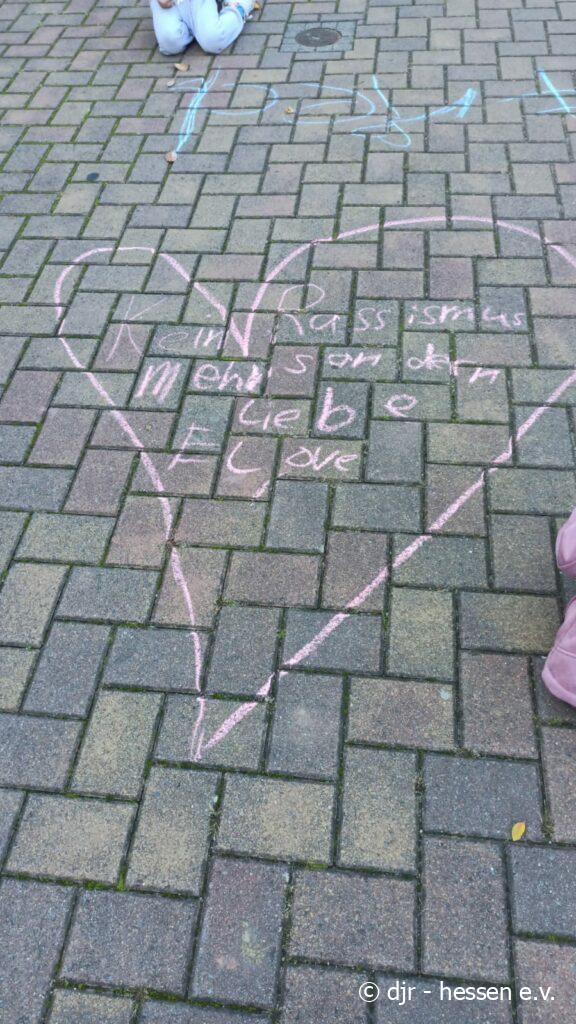 Kein Rassismus
Mehr sondern
Liebe
Love
© djr - hessen e.v.